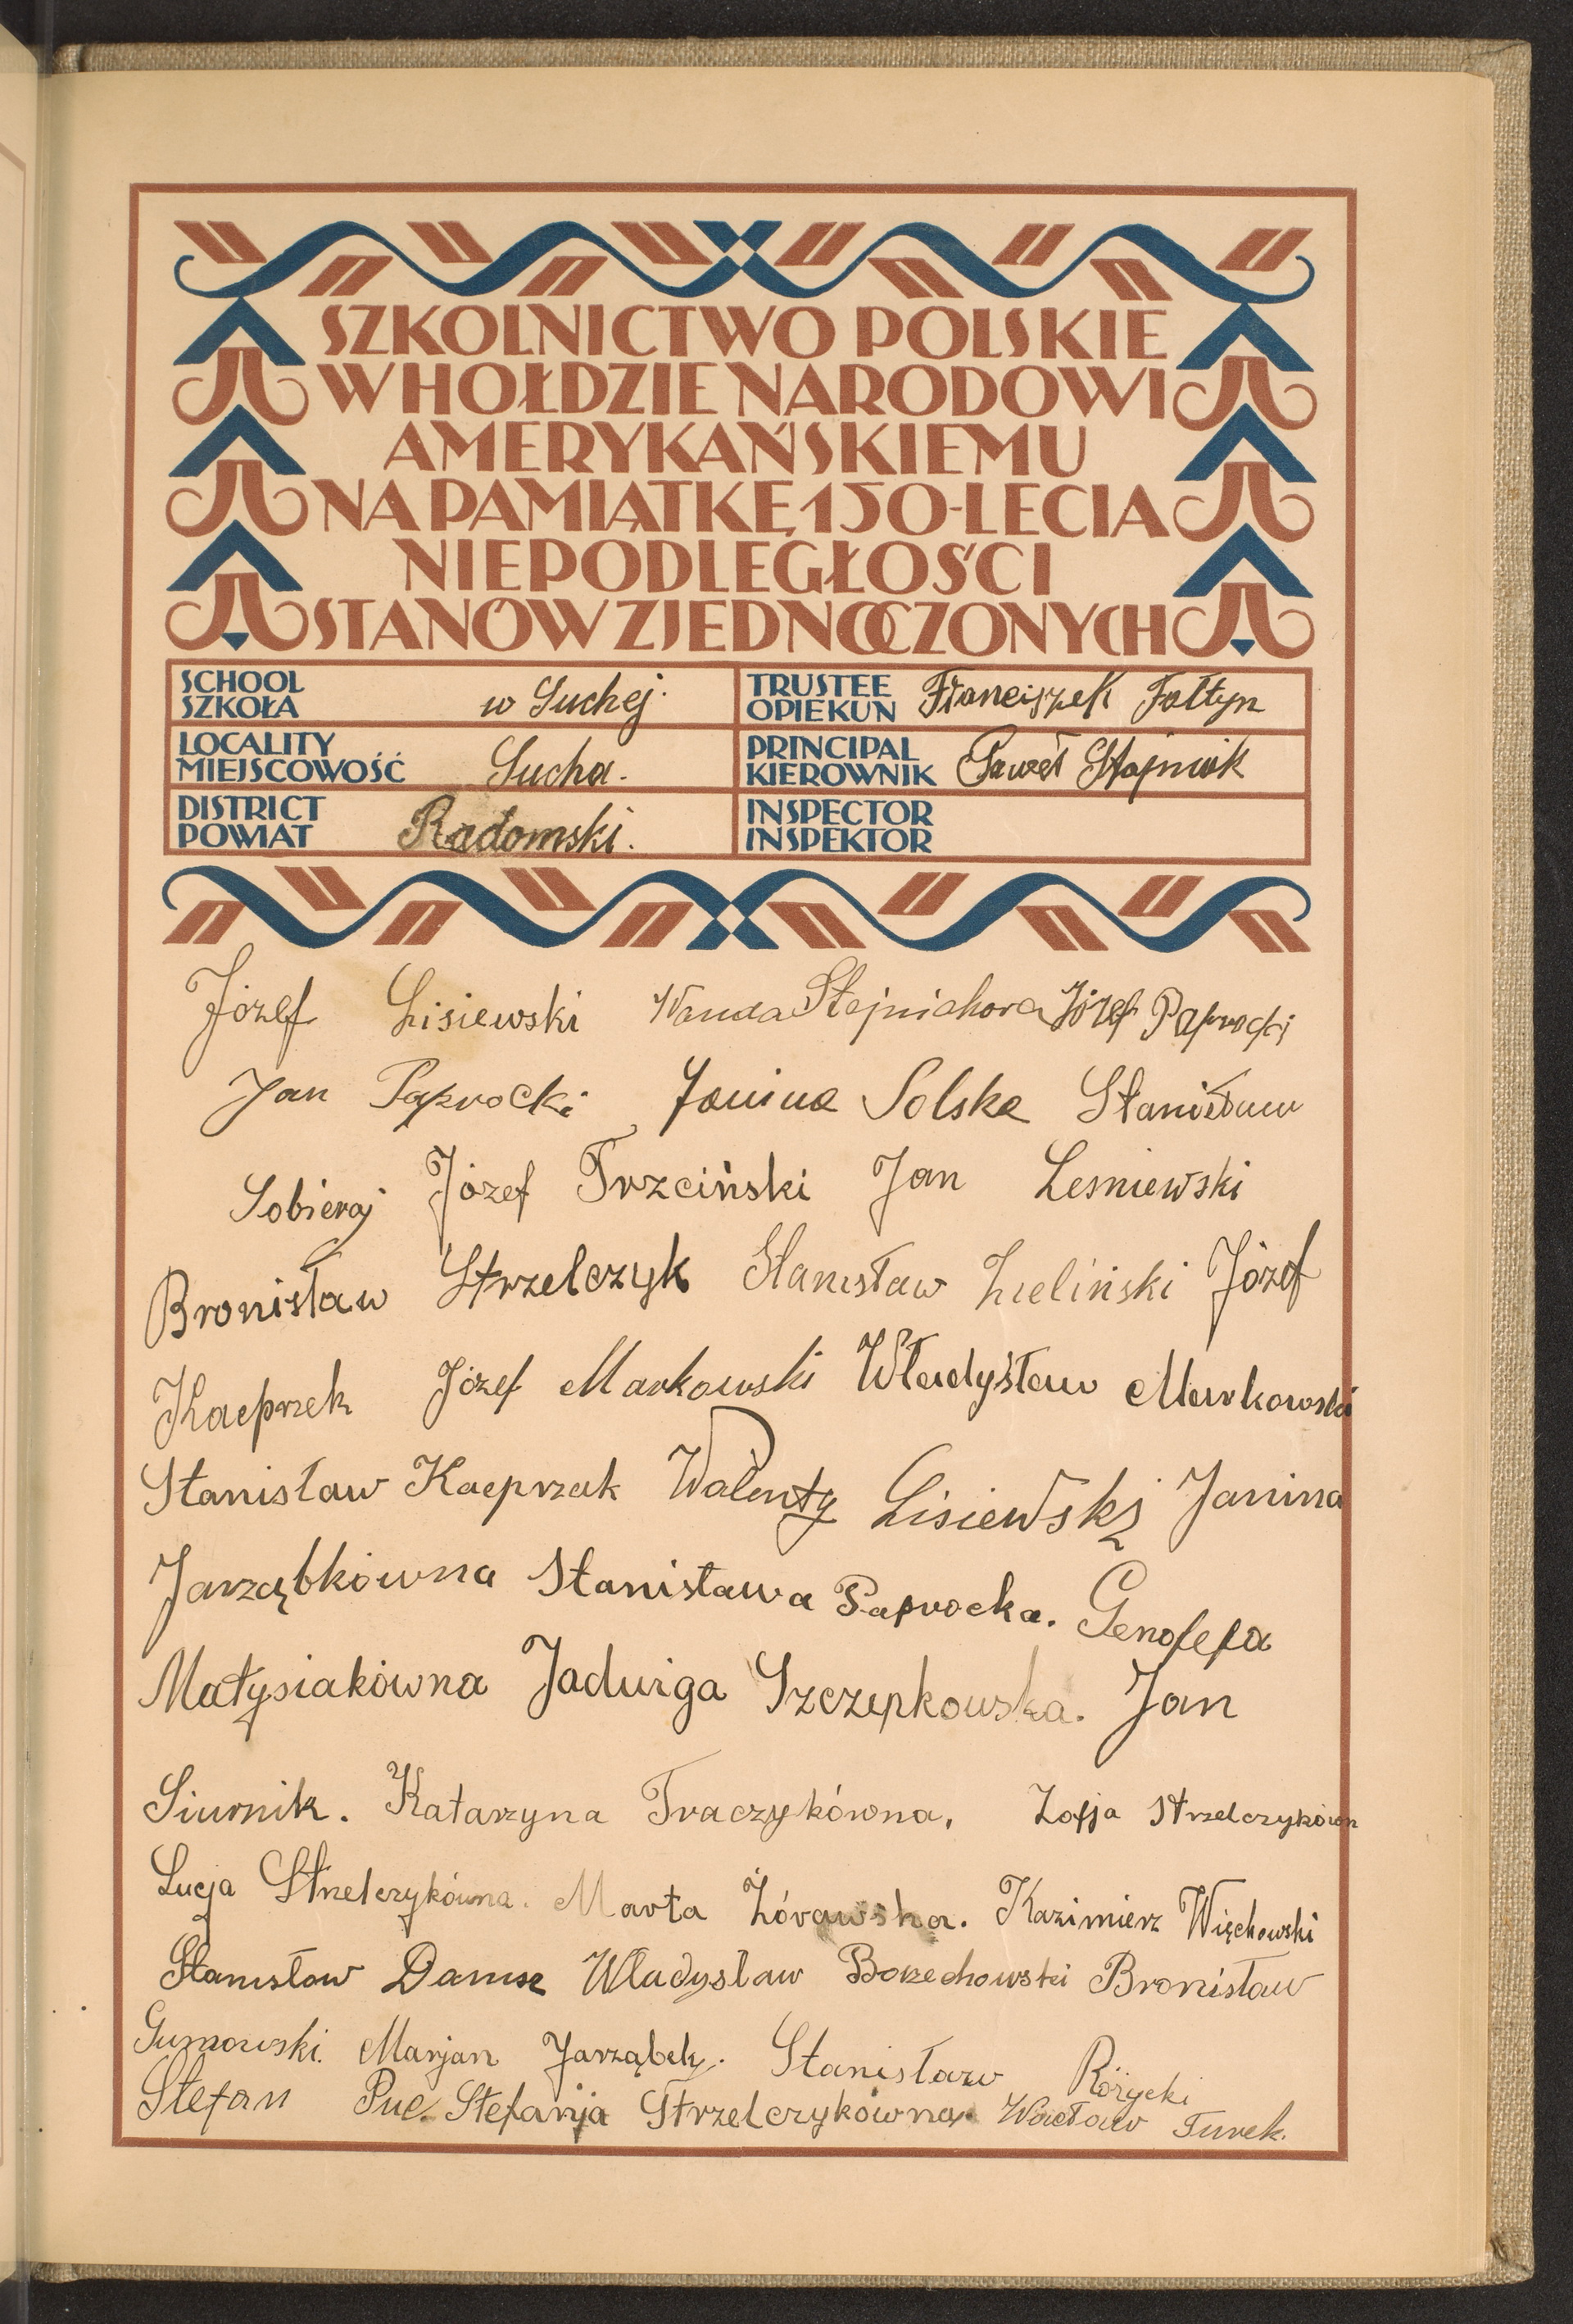 SZKOLNICTWO POLSKIE
W HOŁDZIE NARODOWI
AMERYKAŃSKIEMU
NA PAMIĄTKĘ 150-LECIA
NIEPODLEGŁOŚCI
STANÓW ZJEDNOCZONYCH
SCHOOL
SZKOŁA w Suchej.
TRUSTEE
OPIEKUN Franciszek Fołtyn
LOCALITY
MIEJSCOWOŚĆ Sucha.
PRINCIPAL
KIEROWNIK Paweł Stajniak
DISTRICT
POWIAT Radomski.
INSPECTOR
INSPEKTOR
Józef Lisiewski Wanda Józef Paprocki
Jan Paprocki Janina Solska Stanisław
Sobieraj Józef Trzciński Jan Lesniewski
Bronisław Strzelczyk Stanisław Zieliński Józef
Kacprzek Józef Markowski Władysław Markowski
Stanisław Kacprzak Walenty Lisiewski Janina
Jarząbkówna Stanisława Paprocka. Genofefa
Matysiakówna Jadwiga Szczepkowska. Jan
Siurnik. Katarzyna Traczykówna, Zofja Strzelczykówn
Lucja Strzelczykówna. Marta Żórawska. Kazimierz Więchowski
Stanisław Władysław Borzechowski Bronisław
Gumowski. Marjan Jarząbek. Stanisław Różycki
Stefan Puc. Stefanja Strzelczykówna. Wacław Turek.